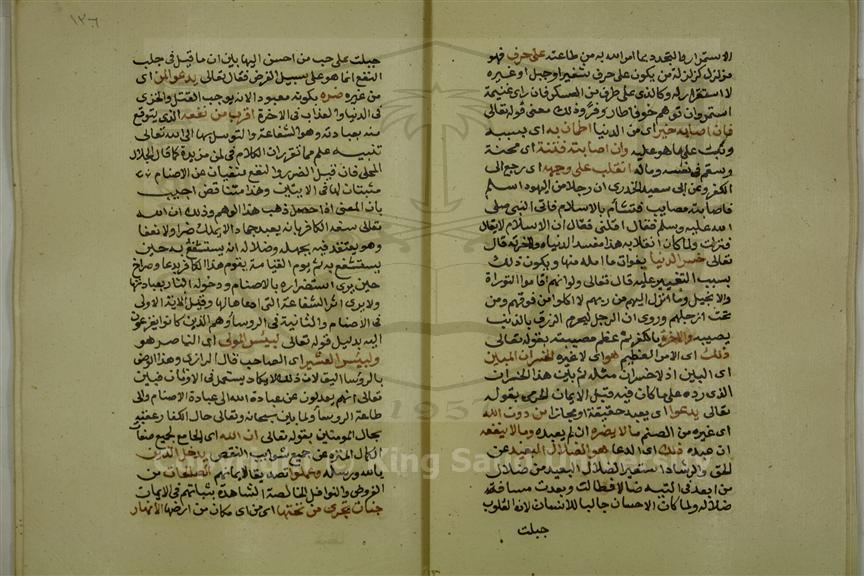 الاستمرار والتجدد بما امر الله به من طاعته على حرف فهو
مزلزل كزلزلة من يكون على حرف شفير او جبل او غيره
لا استقرار له وكالذي على طرف من العسكر فان راى غنيمة
استمر وان توهم خوفا طار وفر وذلك معنى قوله تعالى
فان اصابه خير اى من الدنيا اطمان به اى بسببه
وثبت على ما هو عليه وان اصابته فتنة اى محنة
وسقم فى نفسه وماله انقلب على وجهه اى رجع الى
الكفر وعن ابى سعيد الخدرى ان رجلا من اليهود اسلم
فاصابته مصايب فتشأم بالاسلام فاتى النبى صلى
الله عليه وسلم فقال اقلنى فقال ان الاسلام لا يقال
فنزلت ولما كان انقلابه هذا مفسد الدنياه ولاخرته قال
تعالى خسر الدنيا بفوات ما امله منها ويكون ذلك
بسبب التغيير عليه قال تعالى ولو انهم اقاموا التوراة
والانجيل وما انزل اليهم من ربهم لاكلوا من فوقهم ومن
تحت ارجلهم وروى ان الرجل ليحرم الرزق بالذنب
يصيبه والاخرة بالكفر ثم عظم مصيبته بقوله تعالى
ذلك اى الامر العظيم هو اى لا غيره الخسران المبين
اى البين اذ لا خسران مثله ثم بين هذا الخسران
الذى رده على ما كان فيه قبل الايمان الحرفى بقوله
تعالى يدعوا اى يعبد حقيقة او مجازا من دون الله
اى غيره من الصنم ما لا يضره ان لم يعبده وما لا ينفعه
ان عبده ذلك اى الدعا هو الضلال البعيد عن
الحق والرشاد استعير الضلال البعيد من ضلال
من ابعد فى التيه ضالا فطالت وبعدت مسافة
ضلاله ولما كان الاحسان جالبا للانسان لان القلوب
جبلت
١٣٦
جبلت على حب من احسن اليها بين ان ما قيل فى جلب
النفع انما هو على سبيل الفرض فقال تعالى يدعوا لمن اى
من غيره ضره بكونه معبودا لانه يوجب القتل والخزى
فى الدنيا والعذاب فى الاخرة اقرب من نفعه الذى يتوقع
منه بعبادته وهو الشفاعة والتوسل بها الى الله تعالى
تنبيه علم مما تقرر ان الكلام فى لمن مزيدة كما قال الجلال
المحلى فان قيل الضرر والنفع منفيان عن الاصنام
مثبتان لها فى الايتين وهذا متناقض اجيب
بان المعنى اذا حصل ذهب هذا الوهم وذلك ان الله
تعالى سفه الكافر بانه يعبد جمادا لا يملك ضرا ولا نفعا
وهو يعتقد فيه بجهله وضلاله انه يستشفع به حين
يستشفع به ثم يوم القيامة يقوم هذا الكافر بدعا وصراخ
حين يرى استضراره بالاصنام ودخوله النار بعبادتها
ولا يرى اثر الشفاعة التى ادعاها لها وقيل الاية الاولى
فى الاصنام والثانية فى الرؤسا وهم الذين كانوا يفزعون
اليه بدليل قوله تعالى لبيس المولى اى الناصر هو
ولبيس العشير اى الصاحب قال الرازى وهذا الوصف
بالرؤسا اليق لان ذلك لا يكاد يستعمل فى الاوثان فبين
تعالى انهم يعدلون عن عبادة الله الى عبادة الاصنام والى
طاعة الرؤسا ولما بين سبحانه وتعالى حال الكفار عقبه
بحال المومنين بقوله تعالى ان الله اى الجامع لجميع صفات
الكمال المنزه عن جميع شوايب النقص يدخل الذين امنوا
بالله ورسله وعملوا تصديقا لايمانهم الصالحات من
الفروض والنوافل الخالصة الشاهدة بثباتهم فى الايمان
جنات تجرى من تحتها اى من اى مكان من ارضها الانهار
King Sa
1957